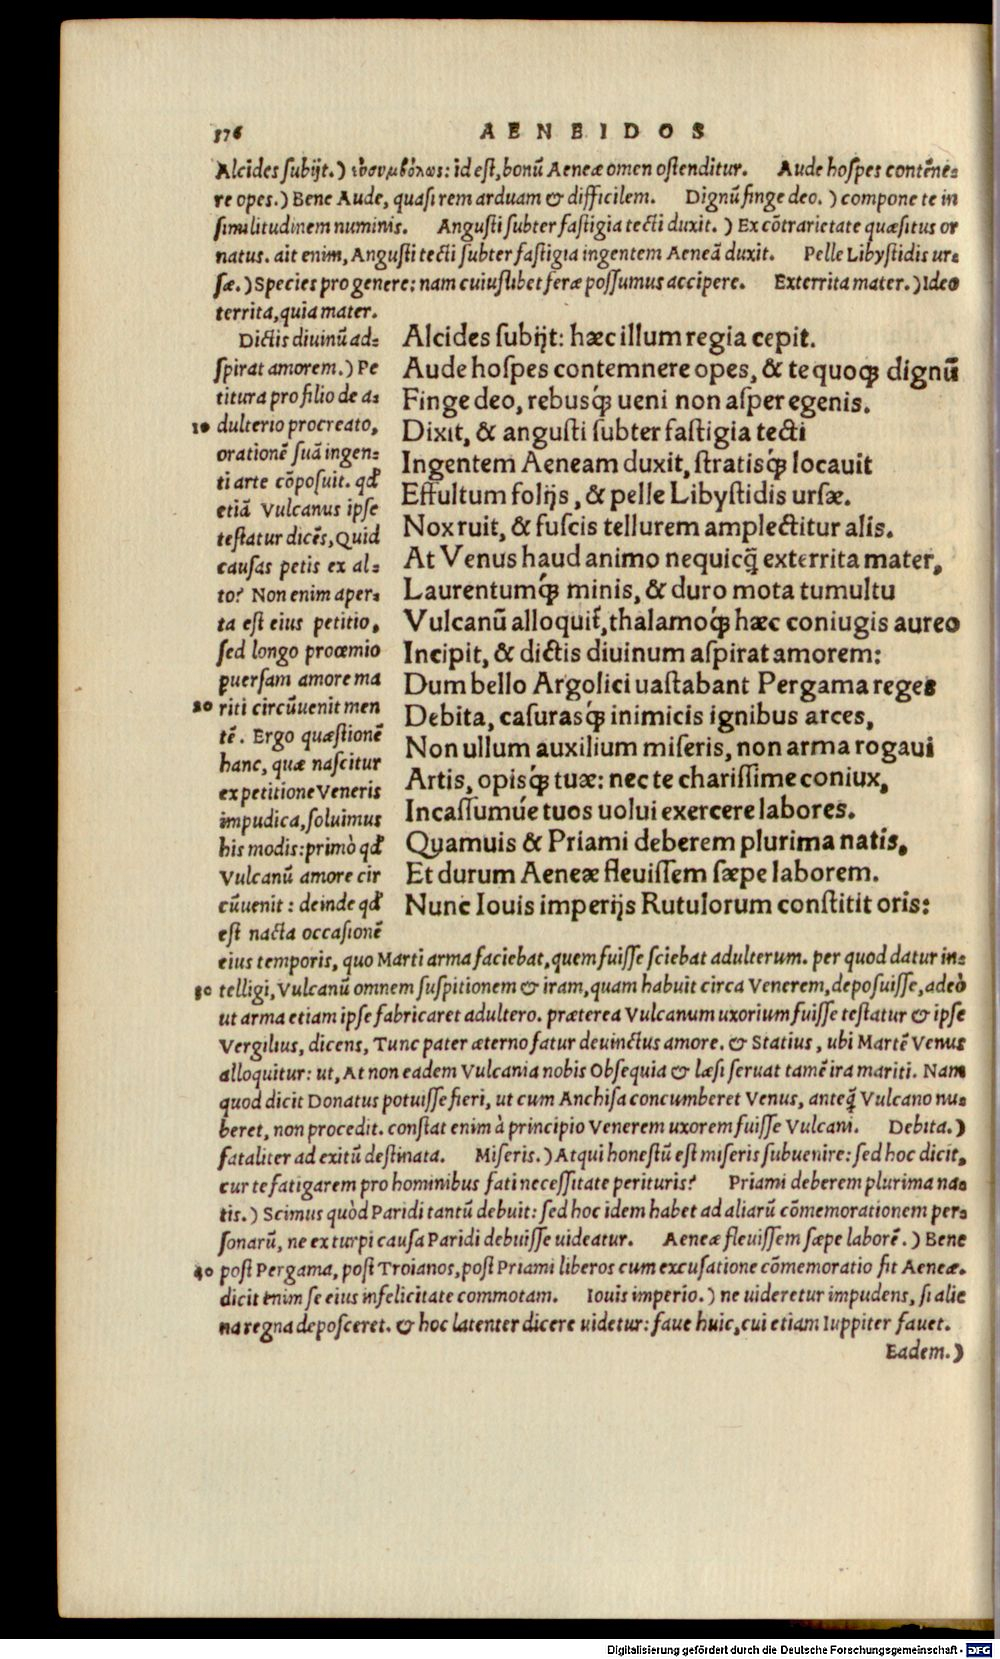 576
AENEIDOS
Alcides subijt.) εὐσυμβόλως: id est, bonū Aeneæ omen ostenditur. Aude hospes contēne-
re opes.) Bene Aude, quasi rem arduam & difficilem. Dignū finge deo.) compone te in
similitudinem numinis. Angusti subter fastigia tecti duxit.) Ex cōtrarietate quæsitus or
natus. ait enim, Angusti tecti subter fastigia ingentem Aeneā duxit. Pelle Libystidis ur-
sæ.) Species pro genere: nam cuiuslibet feræ possumus accipere. Exterrita mater.) Ideo
territa, quia mater.
Dictis diuinū ad-
spirat amorem.) Pe
titura pro filio de a-
10 dulterio procreato,
orationē suā ingen-
ti arte cōposuit. qđ
etiā Vulcanus ipse
testatur dicēs, Quid
causas petis ex al-
to? Non enim aper-
ta est eius petitio,
sed longo proœmio
ꝑuersam amore ma
20 riti circūuenit men
tē. Ergo quæstionē
hanc, quæ nascitur
ex petitione Veneris
impudica, soluimus
his modis: primò qđ
Vulcanū amore cir
cūuenit: deinde qđ
est nacta occasionē
Alcides subijt: hæc illum regia cepit.
Aude hospes contemnere opes, & te quoq; dignū
Finge deo, rebusq́; ueni non asper egenis.
Dixit, & angusti subter fastigia tecti
Ingentem Aeneam duxit, stratisq́; locauit
Effultum folijs, & pelle Libystidis ursæ.
Nox ruit, & fuscis tellurem amplectitur alis.
At Venus haud animo nequicq̄ exterrita mater,
Laurentumq́; minis, & duro mota tumultu
Vulcanū alloquit̃, thalamoq́; hæc coniugis aureo
Incipit, & dictis diuinum aspirat amorem:
Dum bello Argolici uastabant Pergama reges
Debita, casurasq́; inimicis ignibus arces,
Non ullum auxilium miseris, non arma rogaui
Artis, opisq́; tuæ: nec te charissime coniux,
Incassumúe tuos uolui exercere labores.
Quamuis & Priami deberem plurima natis,
Et durum Aeneæ fleuissem sæpe laborem.
Nunc Iouis imperijs Rutulorum constitit oris:
eius temporis, quo Marti arma faciebat, quem fuisse sciebat adulterum. per quod datur in-
30 telligi, Vulcanū omnem suspitionem & iram, quam habuit circa Venerem, deposuisse, adeò
ut arma etiam ipse fabricaret adultero. præterea Vulcanum uxorium fuisse testatur & ipse
Vergilius, dicens, Tunc pater æterno fatur deuinctus amore. & Statius, ubi Martē Venus
alloquitur: ut, At non eadem Vulcania nobis Obsequia & læsi seruat tamē ira mariti. Nam
quod dicit Donatus potuisse fieri, ut cum Anchisa concumberet Venus, anteq̄ Vulcano nu-
beret, non procedit. constat enim à principio Venerem uxorem fuisse Vulcani. Debita.)
fataliter ad exitū destinata. Miseris.) Atqui honestū est miseris subuenire: sed hoc dicit,
cur te fatigarem pro hominibus fati necessitate perituris? Priami deberem plurima na-
tis.) Scimus quòd Paridi tantū debuit: sed hoc idem habet ad aliarū cōmemorationem per-
sonarū, ne ex turpi causa Paridi debuisse uideatur. Aeneæ fleuissem sæpe laborē.) Bene
40 post Pergama, post Troianos, post Priami liberos cum excusatione cōmemoratio fit Aeneæ.
dicit enim se eius infelicitate commotam. Iouis imperio.) ne uideretur impudens, si alie
na regna deposceret. & hoc latenter dicere uidetur: faue huic, cui etiam Iuppiter fauet.
Eadem.)
Digitalisierung gefördert durch die Deutsche Forschungsgemeinschaft - DFG